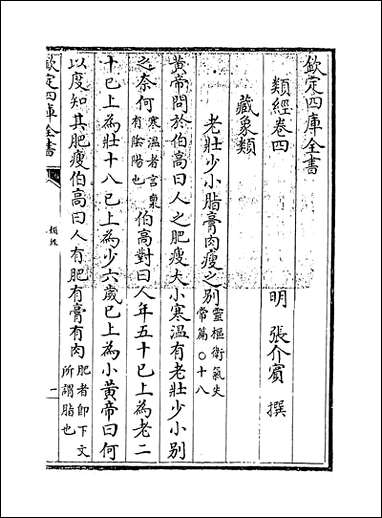 欽定四庫全書
類經卷四
明 張介賓 撰
藏象類
老壯少小脂膏肉瘦之別 靈樞衛氣失常篇○十八
黃帝問於伯高曰人之肥瘦大小寒溫有老壯少小別
之奈何 寒溫者言稟有陰陽也 伯高對曰人年五十已上為老二
十已上為壯十八已上為少六歲已上為小黃帝曰何
以度知其肥瘦伯高曰人有肥有膏有肉 肥者即下文所謂脂也
欽定四庫全書
類經
一